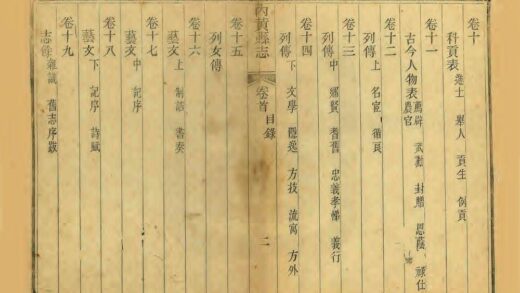 卷十
科貢表 進士 舉人 貢生 例貢
卷十一
古今人物表 薦辟 武勳 封贈 恩蔭 頑仕
農官
卷十二
列傳上 名宦 循良
卷十三
列傳中 鄉賢 耆舊 忠義孝悌 義行
卷十四
列傳下 文學 隱逸 方技 流寓 方外
內黃縣志 卷首 目錄 二
卷十五
列女傳
卷十六
藝文上 制誥 書奏
卷十七
藝文中 記序
卷十八
藝文下 記序 詩賦
卷十九
志餘雜識 舊志序跋